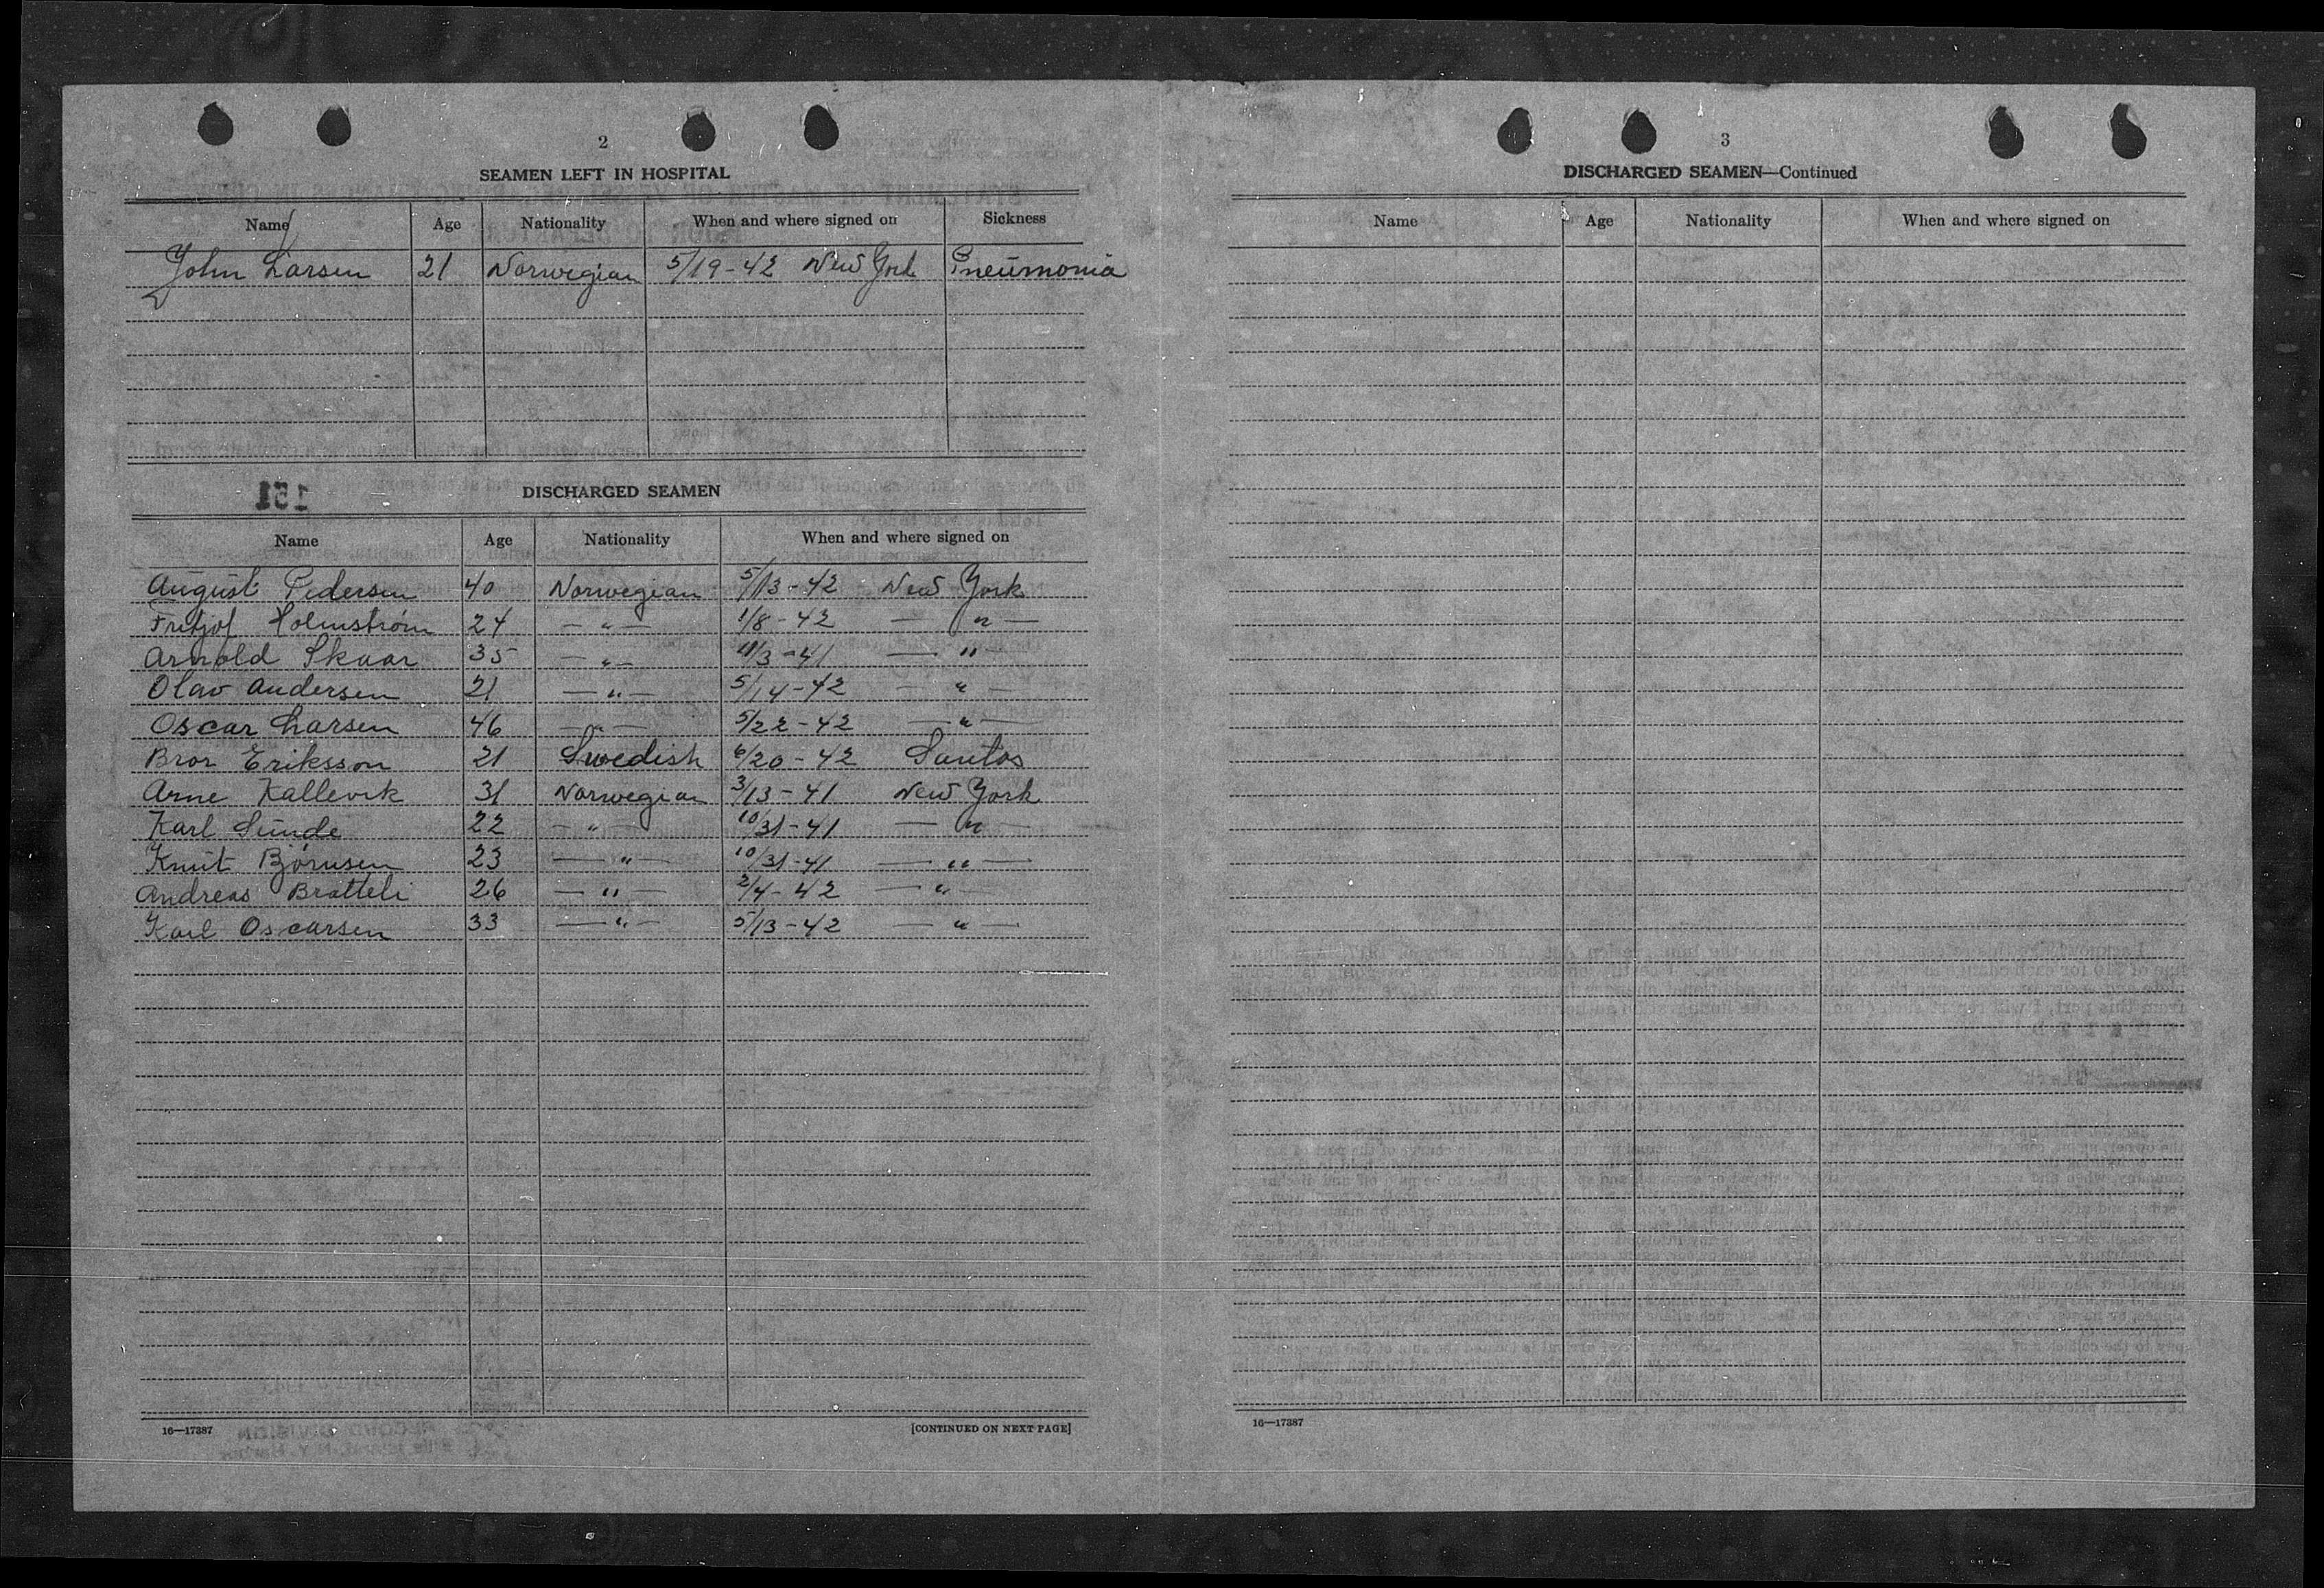 2
SEAMEN LEFT IN HOSPITAL
Name Age Nationality When and where signed on Sickness
John Larsen 21 Norwegian 5/19-42 New York Pneumonia
151
DISCHARGED SEAMEN
Name Age Nationality When and where signed on
August Pedersen 40 Norwegian 5/13-42 New York
Fritjof Holmstrøm 24 — " — 1/8-42 — " —
Arnold Skaar 35 — " — 11/3-41 — " —
Olav Andersen 21 — " — 5/14-42 — " —
Oscar Larsen 46 — " — 5/22-42 — " —
Bror Eriksson 21 Swedish 6/20-42 Santos
Arne Kallevik 31 Norwegian 3/13-41 New York
Karl Sunde 22 — " — 10/31-41 — " —
Knut Bjørnsen 23 — " — 10/31-41 — " —
Andreas Bratteli 26 — " — 2/4-42 — " —
Karl Oscarsen 33 — " — 5/13-42 — " —
16—17387 [CONTINUED ON NEXT PAGE]
3
DISCHARGED SEAMEN—Continued
Name Age Nationality When and where signed on
16—17387